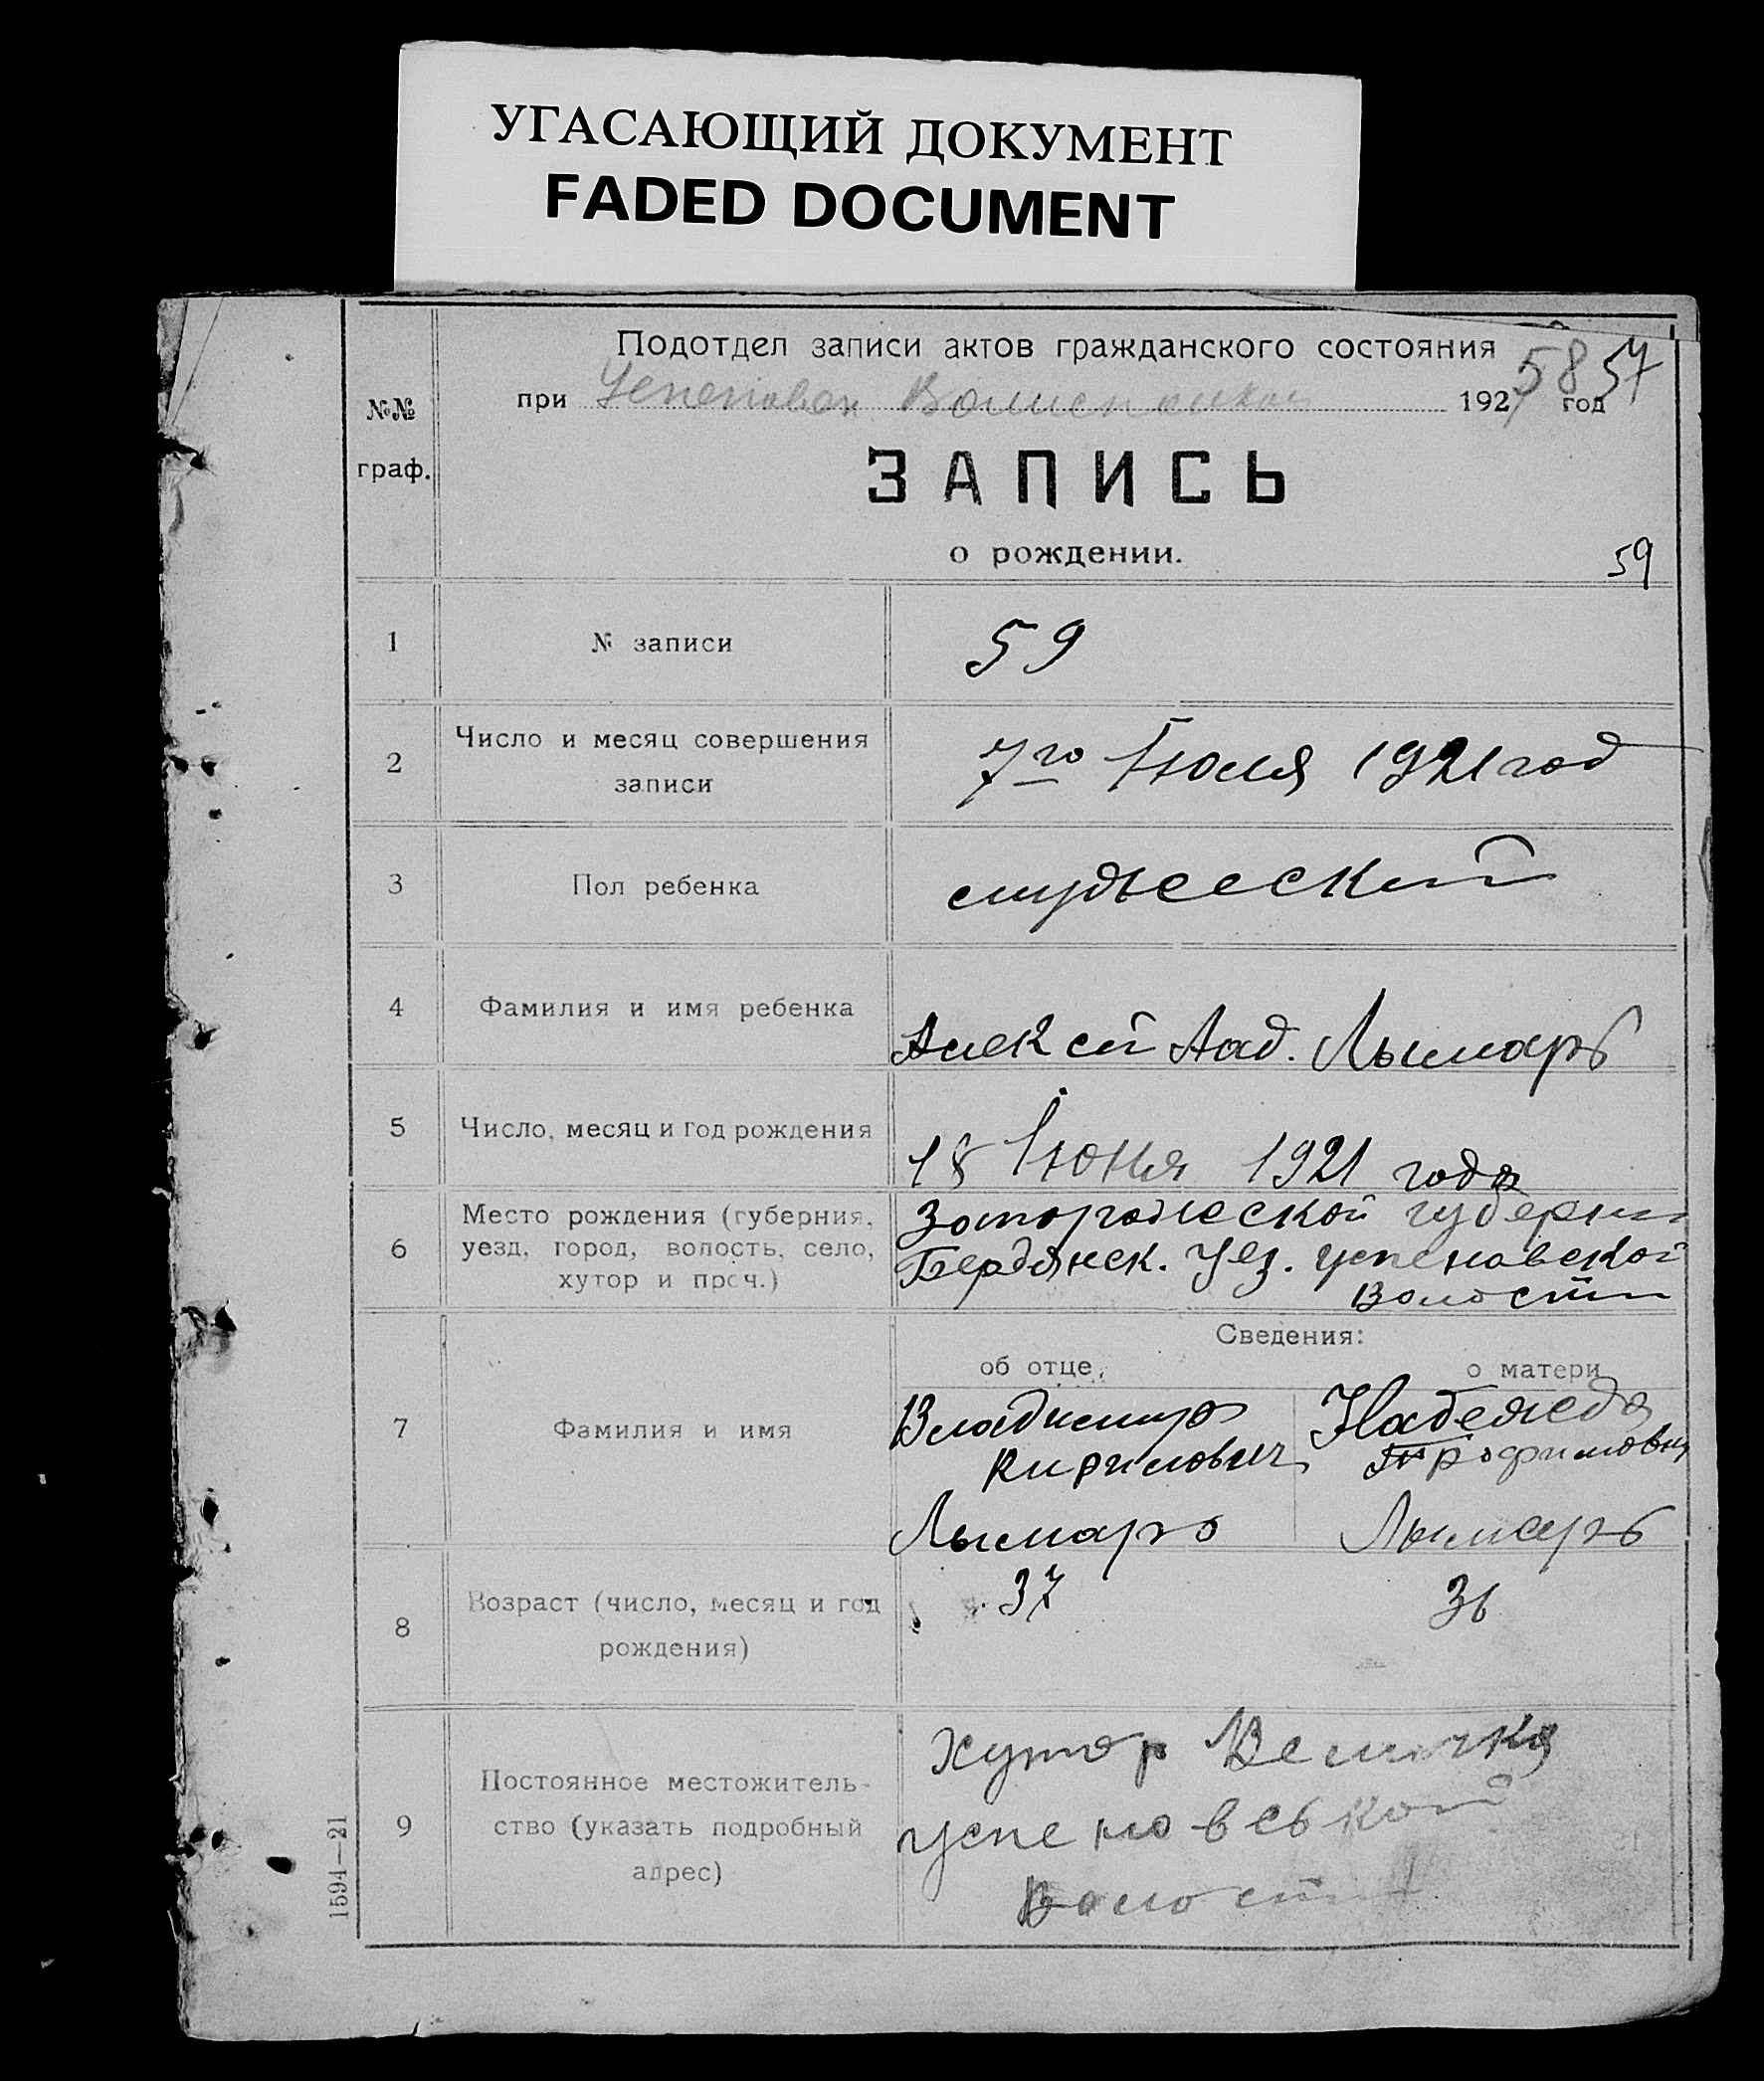 УГАСАЮЩИЙ ДОКУМЕНТ
FADED DOCUMENT
Подотдел записи актов гражданского состояния
58 57
№№
граф.
при 192 год
ЗАПИСЬ
о рождении.
59
1 № записи 59
2 Число и месяц совершения
записи
7го Июля 1921 год
3 Пол ребенка мужеский
4 Фамилия и имя ребенка Алексей Лымарь
5 Число, месяц и год рождения 18 Июня 1921 года
6 Место рождения (губерния,
уезд, город, волость, село,
хутор и проч.)
Запорожеской губернии
Бердянск. Уез. Успеновской
Волости
Сведения:
об отце, о матери
7 Фамилия и имя
Владимир Надежеда
Кирилович Трофимовна
Лымарь Лымарь
8 Возраст (число, месяц и год
рождения)
37 36
9 Постоянное местожитель-
ство (указать подробный
адрес)
Хутор Величка
Успеновськой
Волости
1594—21